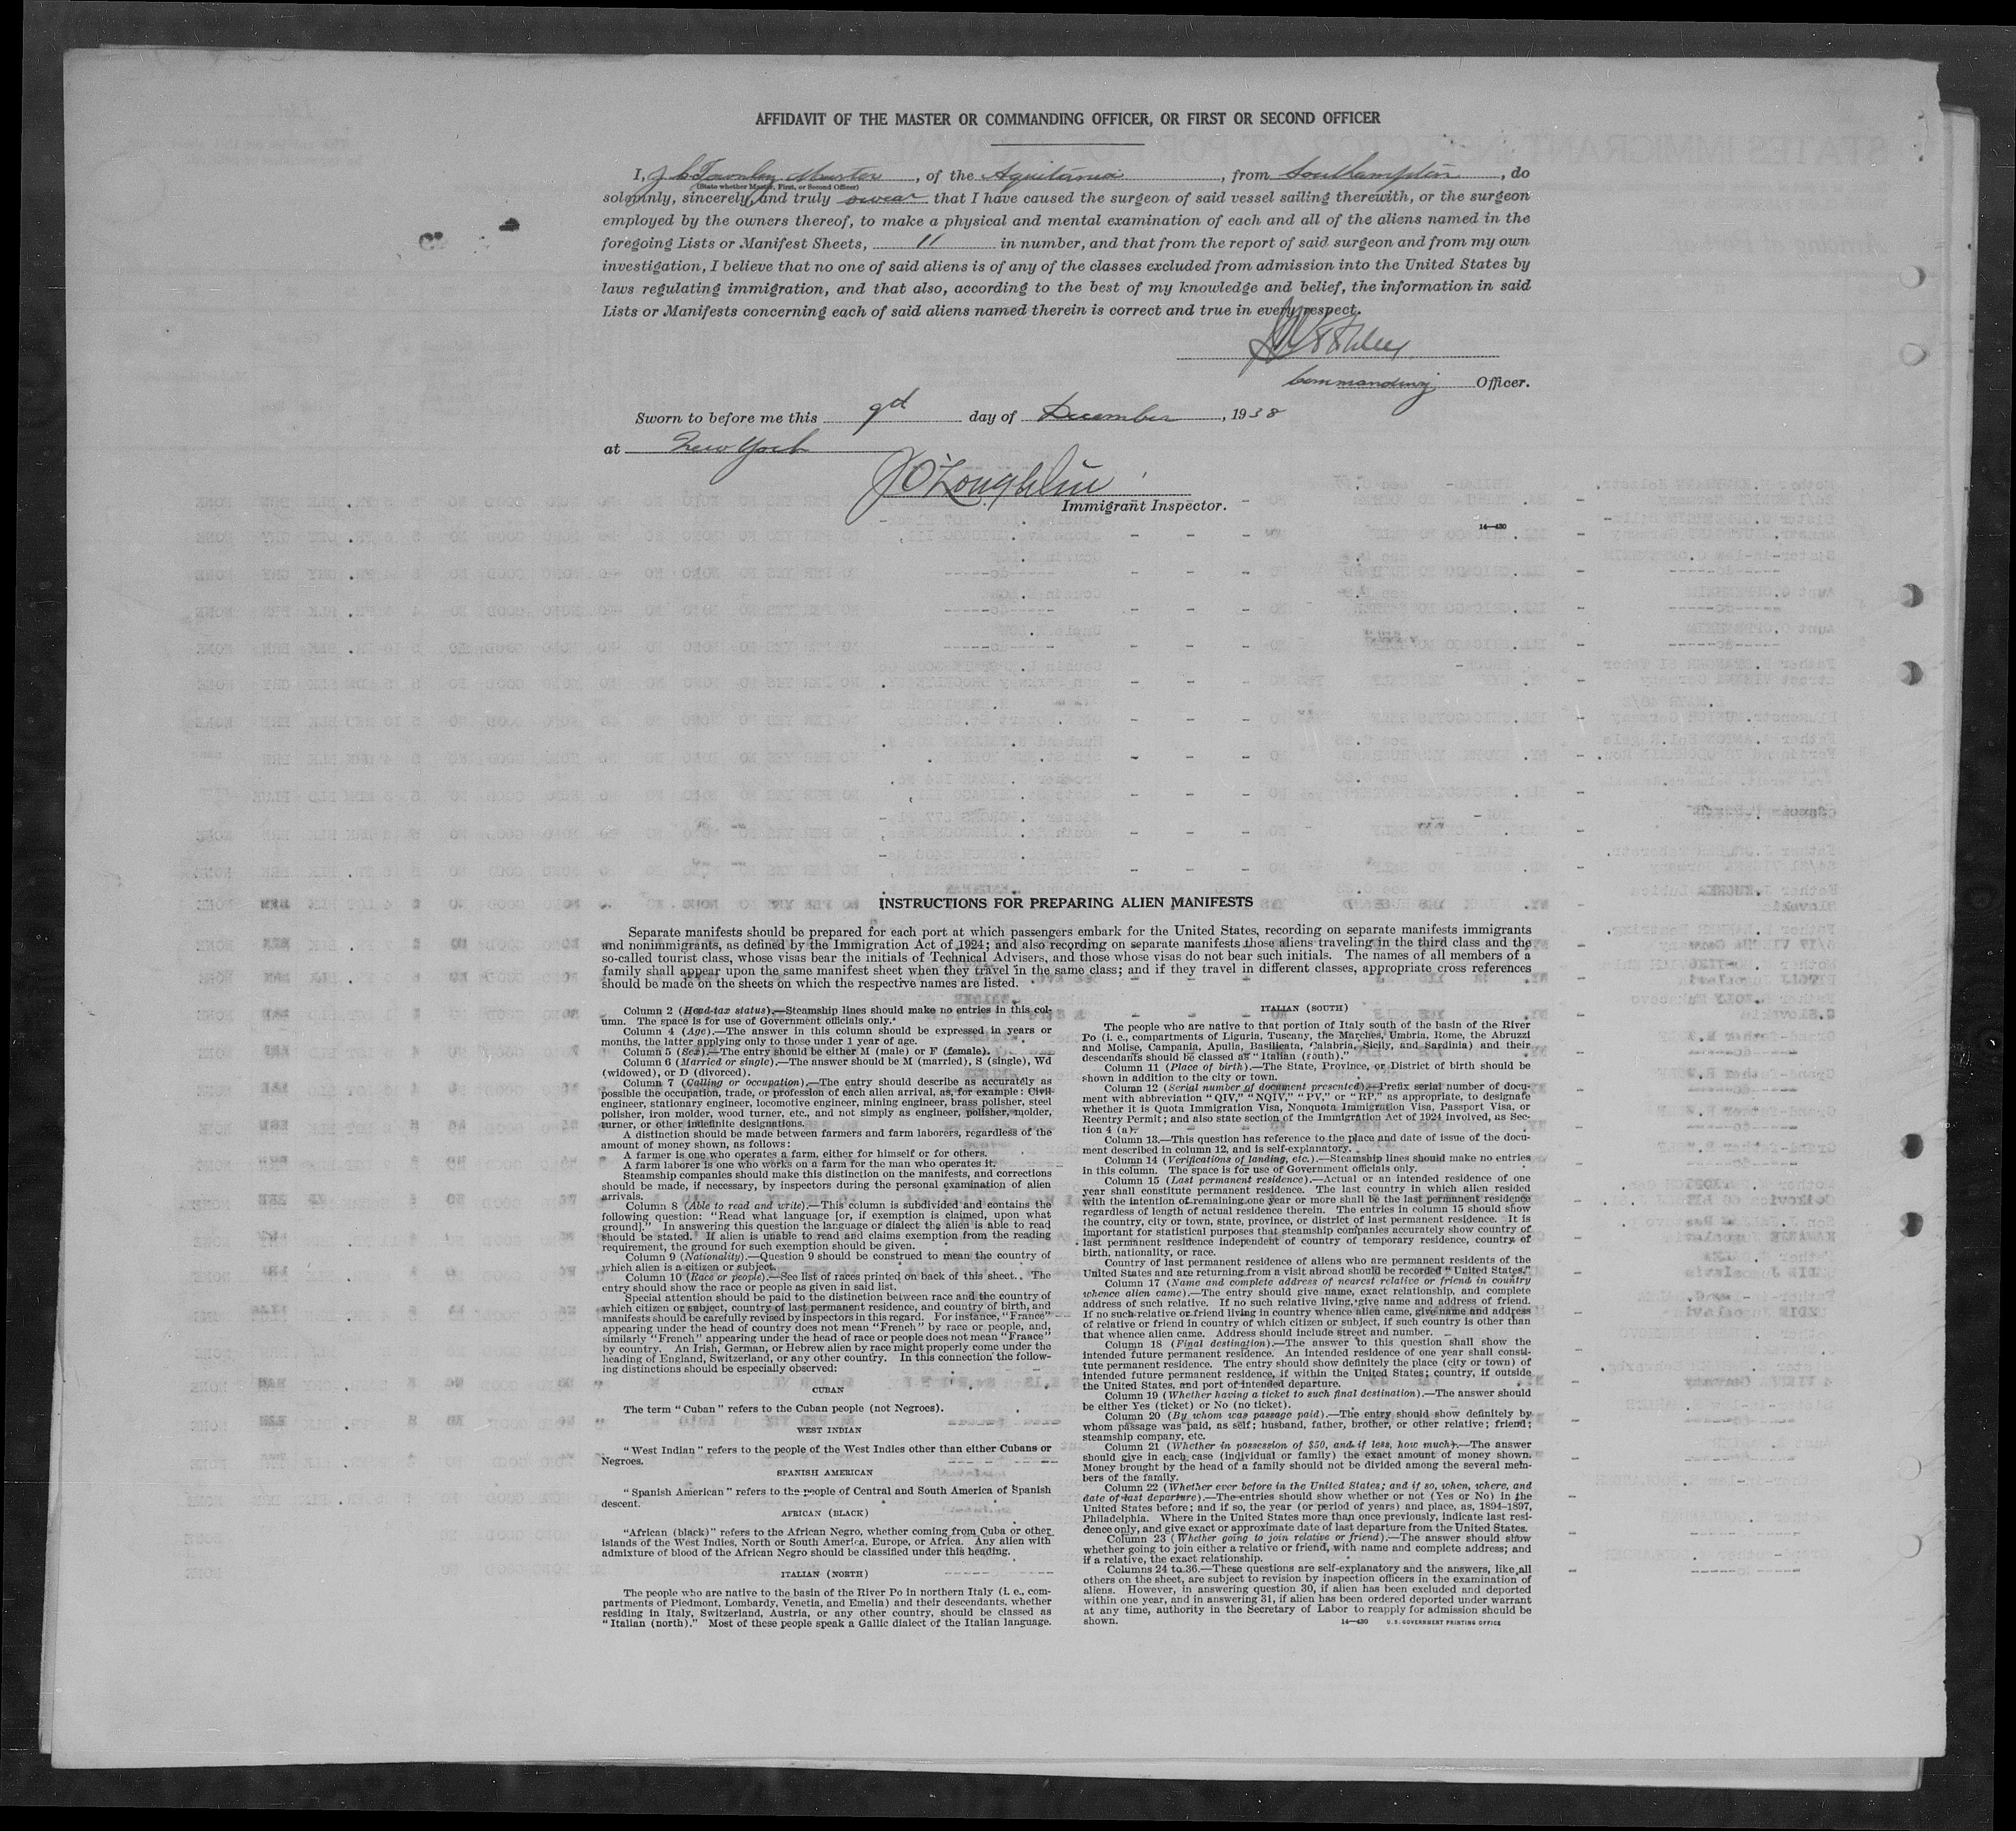 AFFIDAVIT OF THE MASTER OR COMMANDING OFFICER, OR FIRST OR SECOND OFFICER
I, J C Townley Master, of the Aquitania, from Southampton, do
(State whether Master, First, or Second Officer)
solemnly, sincerely, and truly swear that I have caused the surgeon of said vessel sailing therewith, or the surgeon
employed by the owners thereof, to make a physical and mental examination of each and all of the aliens named in the
foregoing Lists or Manifest Sheets, 11 in number, and that from the report of said surgeon and from my own
investigation, I believe that no one of said aliens is of any of the classes excluded from admission into the United States by
laws regulating immigration, and that also, according to the best of my knowledge and belief, the information in said
Lists or Manifests concerning each of said aliens named therein is correct and true in every respect.
Commanding Officer.
Sworn to before me this 9d day of December, 1938
at New York
J O'Loughlin
Immigrant Inspector.
14—430
INSTRUCTIONS FOR PREPARING ALIEN MANIFESTS
Separate manifests should be prepared for each port at which passengers embark for the United States, recording on separate manifests immigrants
and nonimmigrants, as defined by the Immigration Act of 1924; and also recording on separate manifests those aliens traveling in the third class and the
so-called tourist class, whose visas bear the initials of Technical Advisers, and those whose visas do not bear such initials. The names of all members of a
family shall appear upon the same manifest sheet when they travel in the same class; and if they travel in different classes, appropriate cross references
should be made on the sheets on which the respective names are listed.
Column 2 (Head-tax status).—Steamship lines should make no entries in this col-
umn. The space is for use of Government officials only.
Column 4 (Age).—The answer in this column should be expressed in years or
months, the latter applying only to those under 1 year of age.
Column 5 (Sex).—The entry should be either M (male) or F (female).
Column 6 (Married or single).—The answer should be M (married), S (single), Wd
(widowed), or D (divorced).
Column 7 (Calling or occupation).—The entry should describe as accurately as
possible the occupation, trade, or profession of each alien arrival, as, for example: Civil
engineer, stationary engineer, locomotive engineer, mining engineer, brass polisher, steel
polisher, iron molder, wood turner, etc., and not simply as engineer, polisher, molder,
turner, or other indefinite designations.
A distinction should be made between farmers and farm laborers, regardless of the
amount of money shown, as follows:
A farmer is one who operates a farm, either for himself or for others.
A farm laborer is one who works on a farm for the man who operates it.
Steamship companies should make this distinction on the manifests, and corrections
should be made, if necessary, by inspectors during the personal examination of alien
arrivals.
Column 8 (Able to read and write).—This column is subdivided and contains the
following question: "Read what language [or, if exemption is claimed, upon what
ground]." In answering this question the language or dialect the alien is able to read
should be stated. If alien is unable to read and claims exemption from the reading
requirement, the ground for such exemption should be given.
Column 9 (Nationality).—Question 9 should be construed to mean the country of
which alien is a citizen or subject.
Column 10 (Race or people).—See list of races printed on back of this sheet. The
entry should show the race or people as given in said list.
Special attention should be paid to the distinction between race and the country of
which citizen or subject, country of last permanent residence, and country of birth, and
manifests should be carefully revised by inspectors in this regard. For instance, "France"
appearing under the head of country does not mean "French" by race or people, and,
similarly "French" appearing under the head of race or people does not mean "France"
by country. An Irish, German, or Hebrew alien by race might properly come under the
heading of England, Switzerland, or any other country. In this connection the follow-
ing distinctions should be especially observed:
CUBAN
The term "Cuban" refers to the Cuban people (not Negroes).
WEST INDIAN
"West Indian" refers to the people of the West Indies other than either Cubans or
Negroes.
SPANISH AMERICAN
"Spanish American" refers to the people of Central and South America of Spanish
descent.
AFRICAN (BLACK)
"African (black)" refers to the African Negro, whether coming from Cuba or other
islands of the West Indies, North or South America, Europe, or Africa. Any alien with
admixture of blood of the African Negro should be classified under this heading.
ITALIAN (NORTH)
The people who are native to the basin of the River Po in northern Italy (i. e., com-
partments of Piedmont, Lombardy, Venetia, and Emelia) and their descendants, whether
residing in Italy, Switzerland, Austria, or any other country, should be classed as
"Italian (north)." Most of these people speak a Gallic dialect of the Italian language.
ITALIAN (SOUTH)
The people who are native to that portion of Italy south of the basin of the River
Po (i. e., compartments of Liguria, Tuscany, the Marches, Umbria, Rome, the Abruzzi
and Molise, Campania, Apulia, Basilicata, Calabria, Sicily, and Sardinia) and their
descendants should be classed as "Italian (south)."
Column 11 (Place of birth).—The State, Province, or District of birth should be
shown in addition to the city or town.
Column 12 (Serial number of document presented).—Prefix serial number of docu-
ment with abbreviation "QIV," "NQIV," "PV," or "RP," as appropriate, to designate
whether it is Quota Immigration Visa, Nonquota Immigration Visa, Passport Visa, or
Reentry Permit; and also state section of the Immigration Act of 1924 involved, as Sec-
tion 4 (a).
Column 13.—This question has reference to the place and date of issue of the docu-
ment described in column 12, and is self-explanatory.
Column 14 (Verifications of landing, etc.).—Steamship lines should make no entries
in this column. The space is for use of Government officials only.
Column 15 (Last permanent residence).—Actual or an intended residence of one
year shall constitute permanent residence. The last country in which alien resided
with the intention of remaining one year or more shall be the last permanent residence
regardless of length of actual residence therein. The entries in column 15 should show
the country, city or town, state, province, or district of last permanent residence. It is
important for statistical purposes that steamship companies accurately show country of
last permanent residence independent of country of temporary residence, country of
birth, nationality, or race.
Country of last permanent residence of aliens who are permanent residents of the
United States and are returning from a visit abroad should be recorded "United States."
Column 17 (Name and complete address of nearest relative or friend in country
whence alien came).—The entry should give name, exact relationship, and complete
address of such relative. If no such relative living, give name and address of friend.
If no such relative or friend living in country whence alien came, give name and address
of relative or friend in country of which citizen or subject, if such country is other than
that whence alien came. Address should include street and number.
Column 18 (Final destination).—The answer to this question shall show the
intended future permanent residence. An intended residence of one year shall consti-
tute permanent residence. The entry should show definitely the place (city or town) of
intended future permanent residence, if within the United States; country, if outside
the United States, and port of intended departure.
Column 19 (Whether having a ticket to such final destination).—The answer should
be either Yes (ticket) or No (no ticket).
Column 20 (By whom was passage paid).—The entry should show definitely by
whom passage was paid, as self; husband, father, brother, or other relative; friend;
steamship company, etc.
Column 21 (Whether in possession of $50, and if less, how much).—The answer
should give in each case (individual or family) the exact amount of money shown.
Money brought by the head of a family should not be divided among the several mem-
bers of the family.
Column 22 (Whether ever before in the United States; and if so, when, where, and
date of last departure).—The entries should show whether or not (Yes or No) in the
United States before; and if so, the year (or period of years) and place, as, 1894–1897,
Philadelphia. Where in the United States more than once previously, indicate last resi-
dence only, and give exact or approximate date of last departure from the United States.
Column 23 (Whether going to join relative or friend).—The answer should show
whether going to join either a relative or friend, with name and complete address; and
if a relative, the exact relationship.
Columns 24 to 36.—These questions are self-explanatory and the answers, like all
others on the sheet, are subject to revision by inspection officers in the examination of
aliens. However, in answering question 30, if alien has been excluded and deported
within one year, and in answering 31, if alien has been ordered deported under warrant
at any time, authority in the Secretary of Labor to reapply for admission should be
shown.
14—430 U. S. GOVERNMENT PRINTING OFFICE